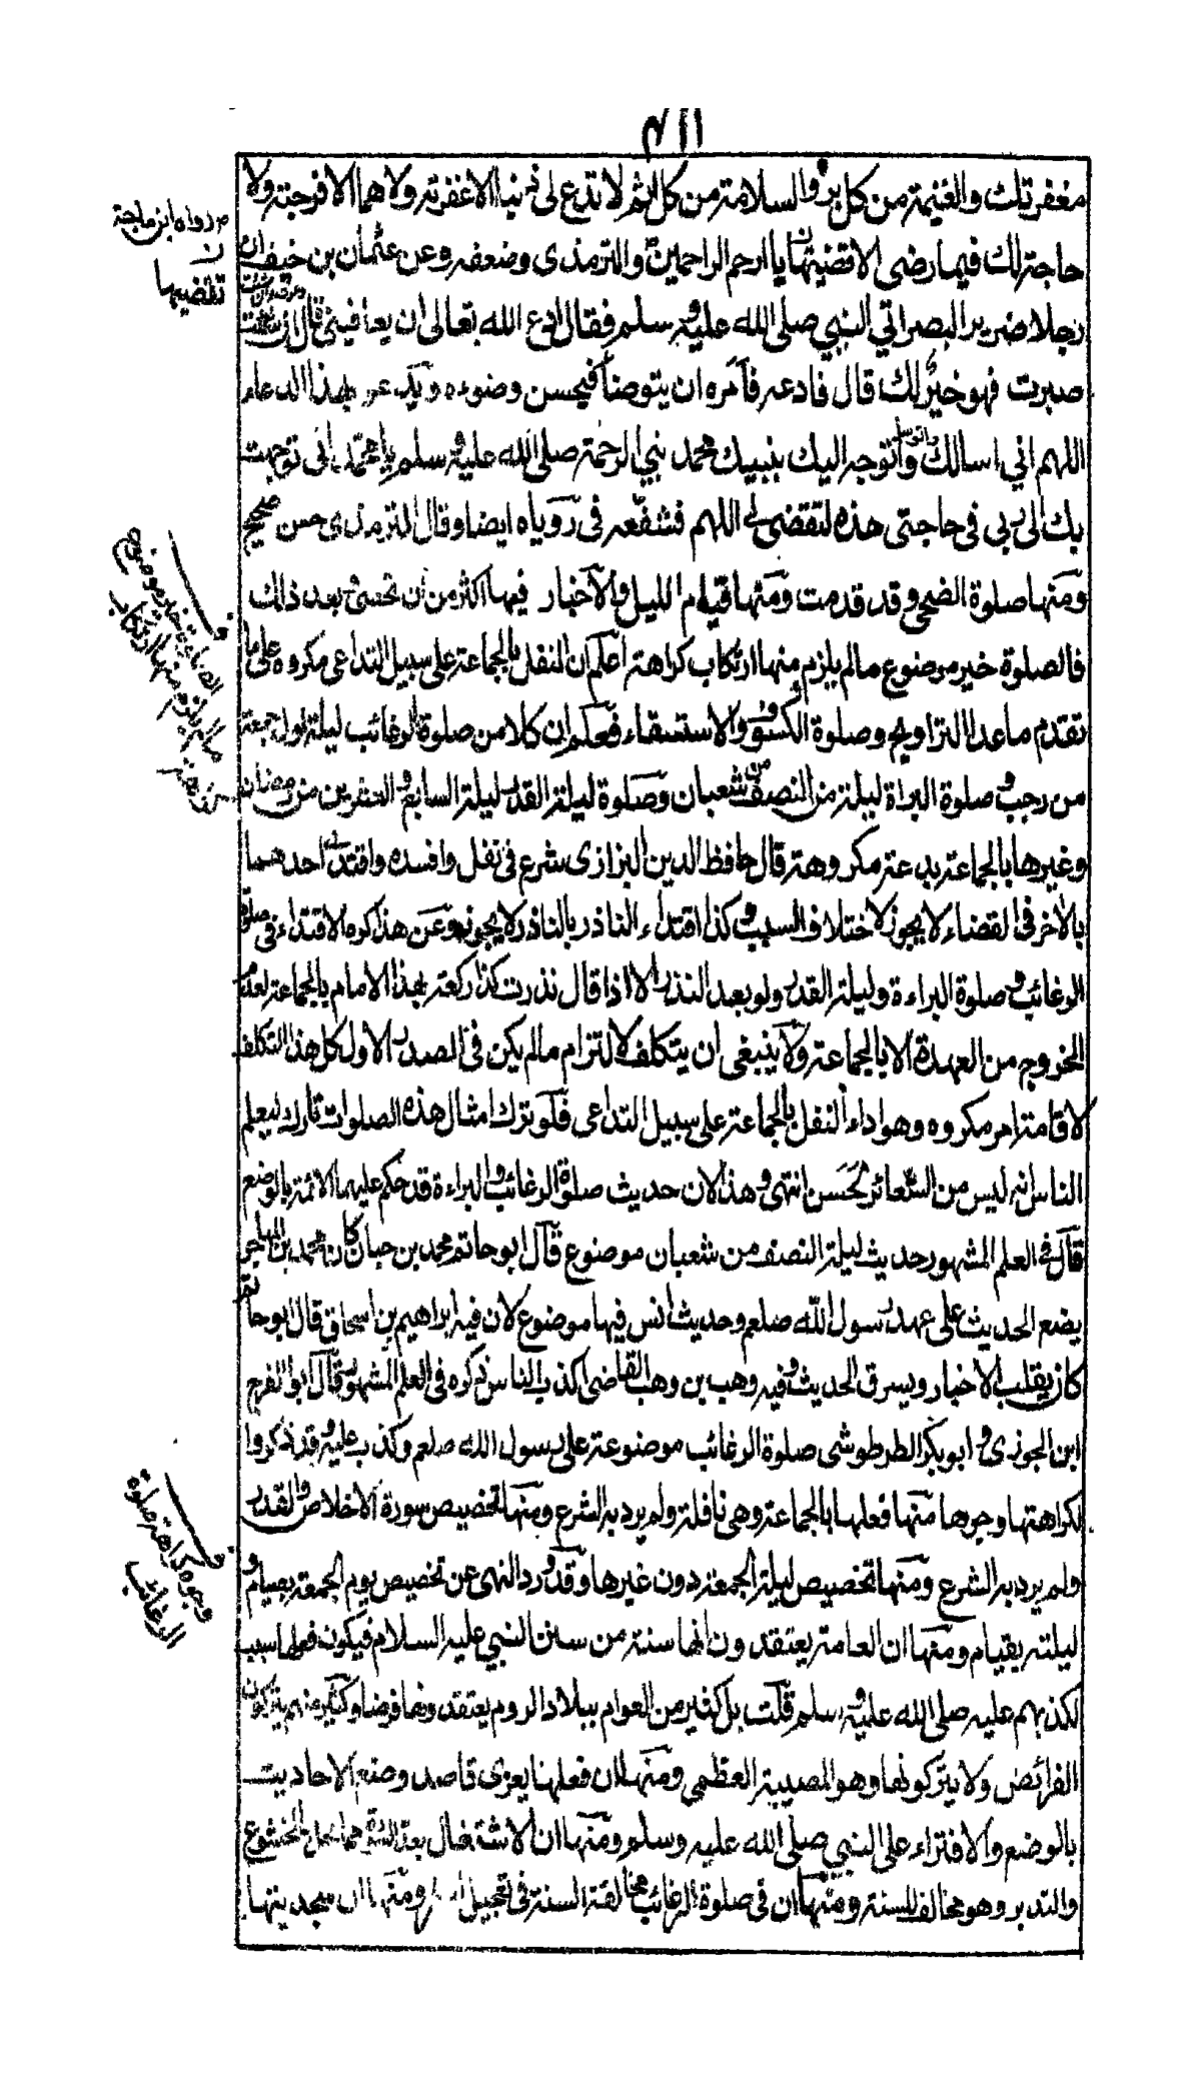 ٤١١
مغفرتك والغنيمة من كل بر والسلامة من كل اثم لا تدع لى ذنبا الا غفرته ولا هما الا فرجته ولا
حاجة لك فيها رضى الا قضيتها يا ارحم الراحمين والترمذى وضعفه وعن عثمان بن حنيف ان
رجلا ضرير البصر اتي النبي صلى الله عليه وسلم فقال ادع الله تعالى ان يعافينى قال ان شئت دعوت وان شئت
صبرت فهو خير لك قال فادعه فامره ان يتوضأ فيحسن وضوءه ويدعو بهذا الدعاء
اللهم اني اسالك واتوسل واتوجه اليك بنبيك محمد نبي الرحمة صلى الله عليه وسلم يا محمد انى توجهت
بك الى ربى فى حاجتى هذه لتقضى لى اللهم فشفعه فى روياه ايضا وقال الترمذى حسن صحيح
ومنها صلوة الضحى وقد قدمت ومنها قيام الليل والاخبار فيها اكثر من ان تحصى وبعد ذلك
فالصلوة خير موضوع مالم يلزم منها ارتكاب كراهة اعلم ان النفل بالجماعة على سبيل التداعى مكروه على ما
تقدم ما عدا التراويح وصلوة الكسوف والاستسقاء فعلم ان كلا من صلوة الرغائب ليلة اول جمعة
من رجب وصلوة البراة ليلة النصف من شعبان وصلوة ليلة القدر ليلة السابع والعشرين من رمضان
وغيرها بالجماعة بدعة مكروهة قال حافظ الدين البزازى شرع فى نفل وافسده واقتدى احدهما
بالاخر فى القضاء لا يجوز لاختلاف السبب وكذا اقتداء الناذر بالناذر لا يجوز وعن هذا كره الاقتداء فى صلوة
الرغائب وصلوة البراءة وليلة القدر ولو بعد النذر الا اذا قال نذرت كذا ركعة بهذا الامام بالجماعة لعدم
الخروج من العهدة الا بالجماعة ولا ينبغى ان يتكلف لالتزام مالم يكن فى الصدر الاول كل هذا التكلف
لاقامة امر مكروه وهو اداء النفل بالجماعة على سبيل التداعى فلو ترك امثال هذه الصلوات تارك ليعلم
الناس انه ليس من الشعائر لحسن انتهى وهذا لان حديث صلوة الرغائب والبراءة قد حكم عليهما الائمة بالوضع
قال فى العلم المشهور حديث ليلة النصف من شعبان موضوع قال ابو حاتم محمد بن حبان كان محمد بن المهاجر
يضع الحديث على عهد رسول الله صلعم وحديث انس فيها موضوع لان فيه ابراهيم بن اسحاق قال ابو حاتم
كان يقلب الاخبار ويسرق الحديث وفيه وهب بن وهب القاضى اكذب الناس ذكره فى العلم المشهور قال ابو الفرج
ابن الجوزى و ابو بكر الطرطوشى صلوة الرغائب موضوعة على رسول الله صلعم وكذب عليه وقد ذكروا
لكراهتها وجوها منها فعلها بالجماعة وهى نافلة ولم يرد به الشرع ومنها تخصيص سورة الاخلاص والقدر
ولم يرد به الشرع ومنها تخصيص ليلة الجمعة دون غيرها وقد ورد النهى عن تخصيص يوم الجمعة بصيام و
ليلته بقيام ومنها ان العامة يعتقدون انها سنة من سنن النبي عليه السلام فيكون فعلها سببا
لكذبهم عليه صلى الله عليه وسلم قلت بل كثير من العوام ببلاد الروم يعتقدونها فرضا وكثير منهم يتركون
الفرائض ولا يتركونها وهو المصيبة العظمى ومنها ان فعلها يغرى قاصد وضع الاحاديث
بالوضع والافتراء على النبي صلى الله عليه وسلم ومنها ان الاشتغال بعد السورة مما يخل بالخشوع
والتدبر وهو مخالف للسنة ومنها ان فى صلوة الرغائب مخالفة السنة فى تعجيل ومنها ان سجديتها
م رواه ابن ماجة
ن
تقضيها
الصلوة خير موضوع
مالم يلزم منها ارتكاب
كراهة
وجوه كراهة صلوة
الرغائب